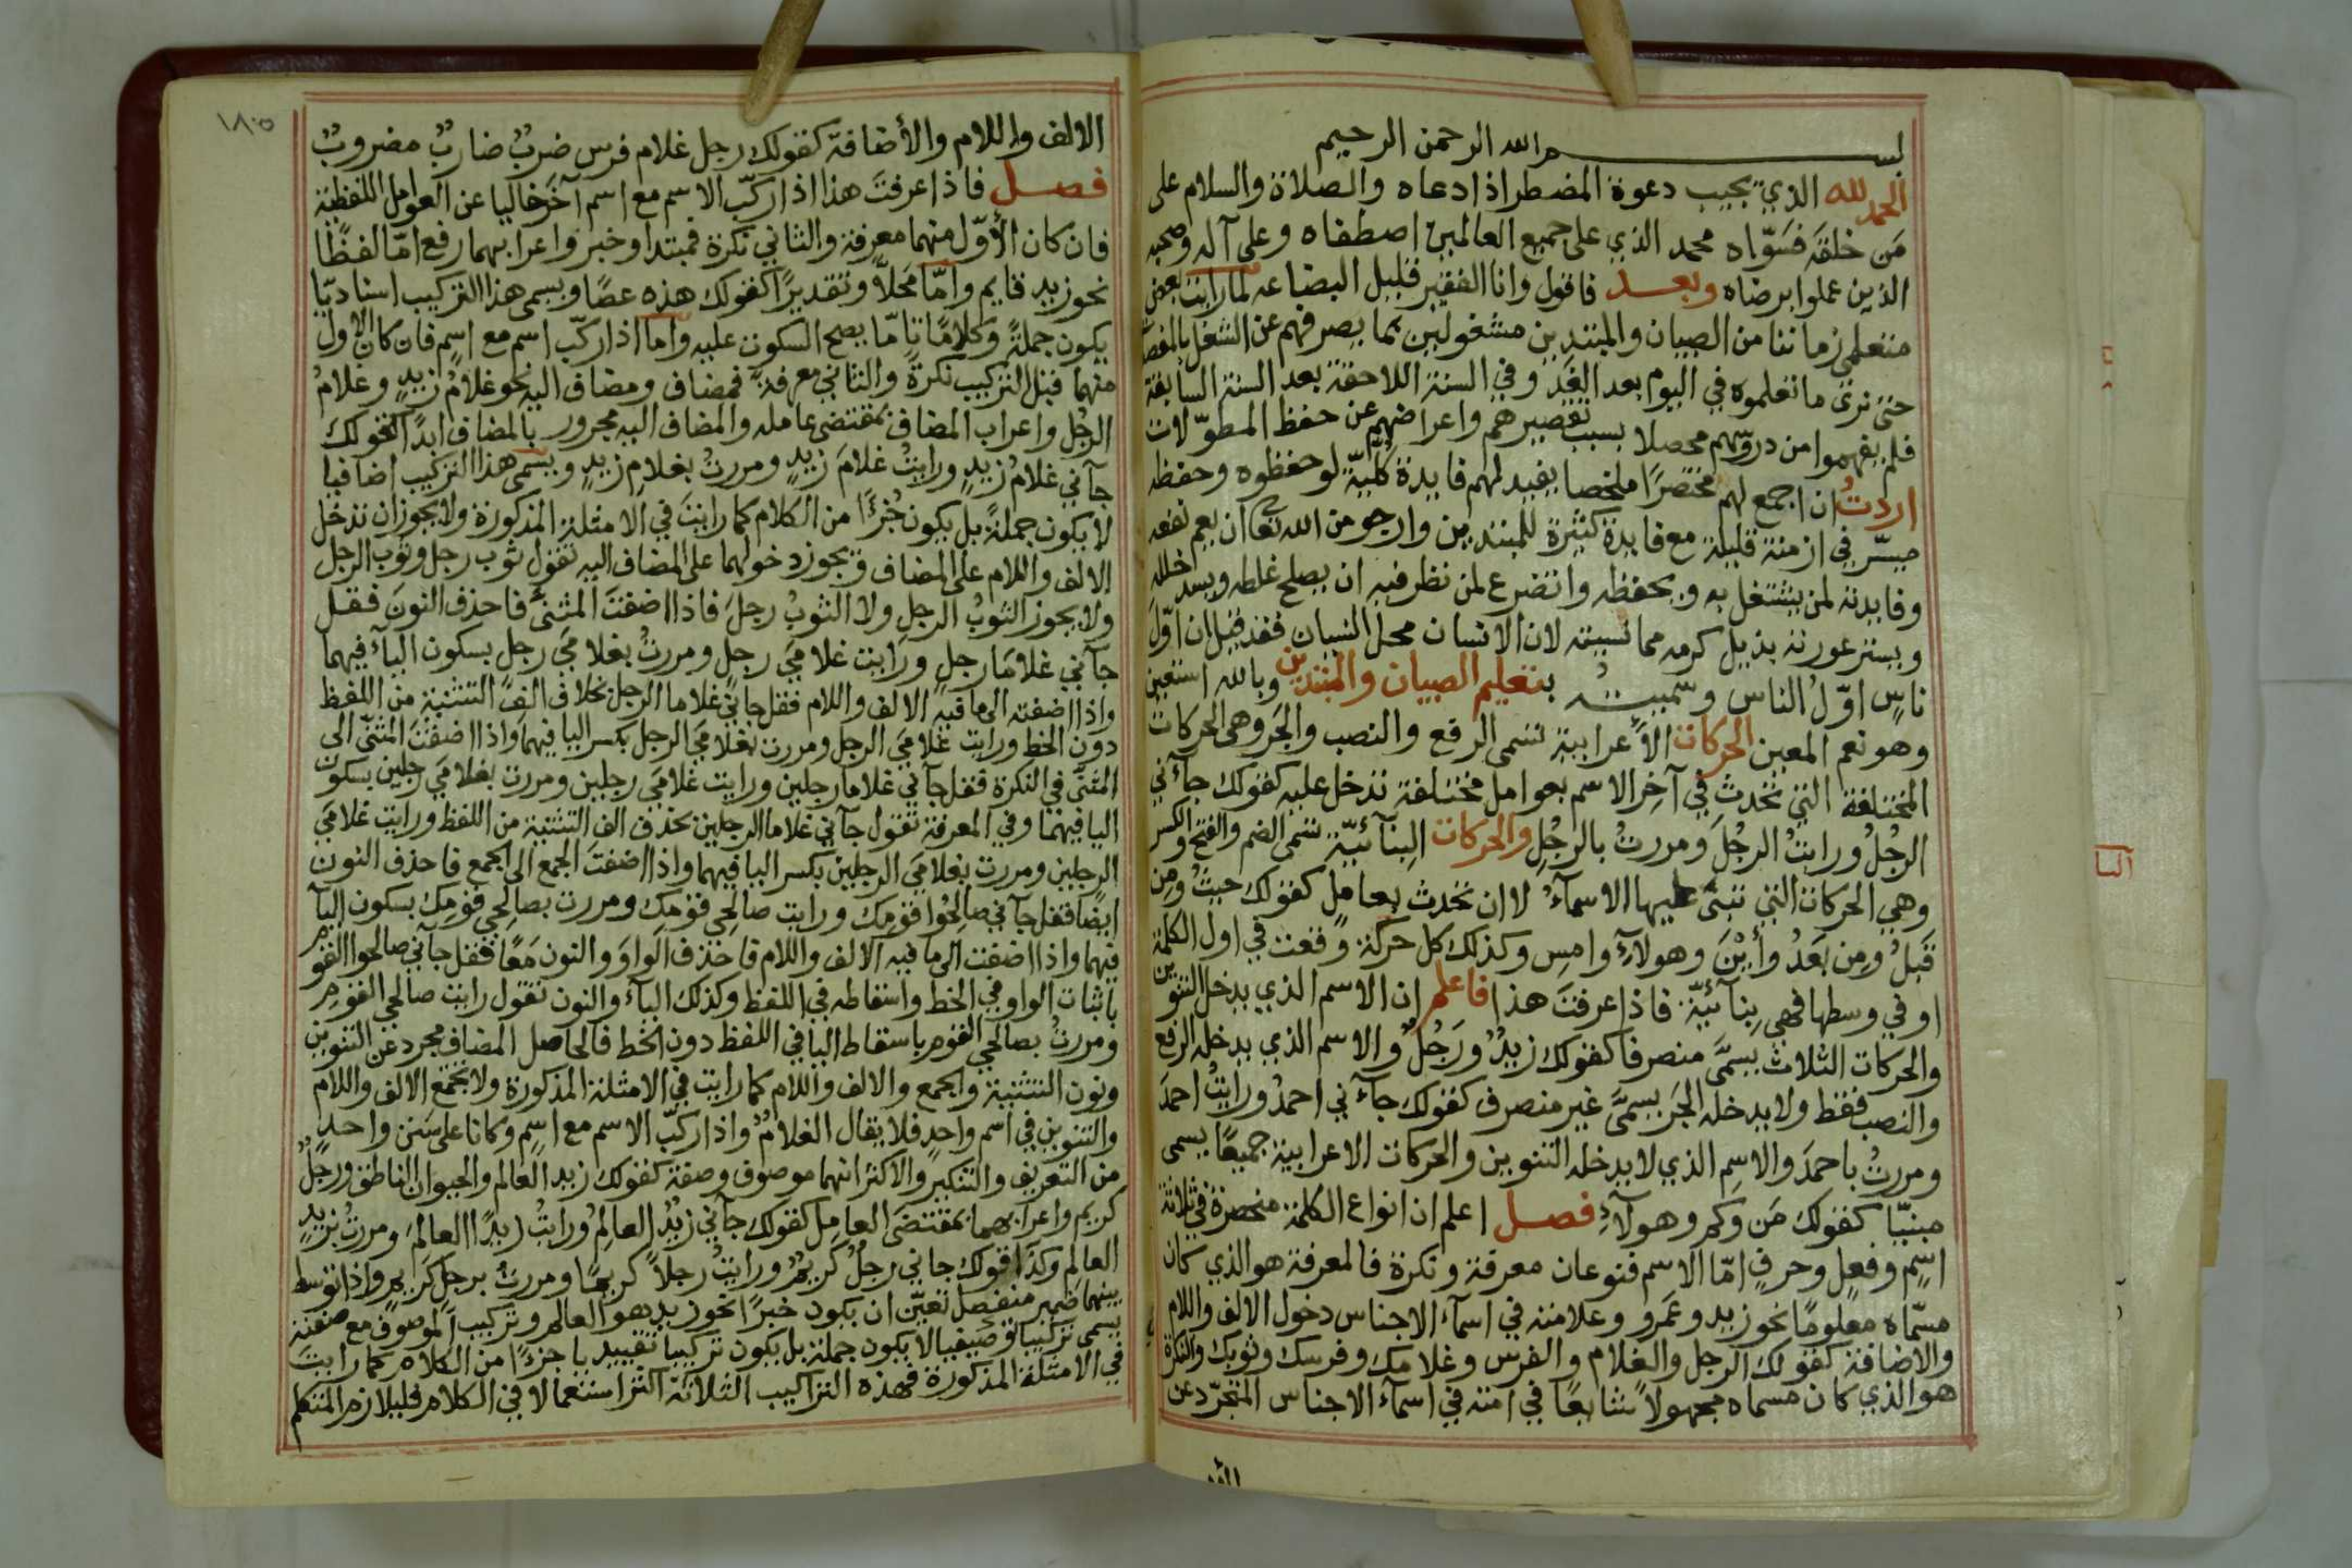 بسم الله الرحمن الرحيم
الحمد لله الذي يجيب دعوة المضطر اذا دعاه والصلاة والسلام على
مَن خلقَه فسَوّاه محمد الذي على جميع العالمين اصطفاه وعلى آله وصحبه
الذين عملوا برضاه وبعد فاقول وانا الفقير قليل البضاعه لمّا رايت بعض
متعلمي زماننا من الصبيان والمبتدين مشغولين بما يصرفهم عن الشغل
حتى نرى ما تعلموه في اليوم بعد الغَدِ وفي السنة اللاحقة بعد السنة السابقة
فلم يفهموا من دروسهم محصلا بسبب تقصيرهم واعراضهم عن حفظ المطوّلات
اردتُ ان اجمع لهم مختصرًا ملخصا يفيد لهم فايدة كُليّة لو حفظوه وحفظه
ميسّر في ازمنة قليلة مع فايدة كثيرة للمبتدين وارجو من الله تعا ان يعم نفعه
وفايدته لمن يشتغل به ويحفظه واتضرع لمن نظر فيه ان يصلح غلطه ويسد خلله
ويستر عورته بذيل كرمه مما نسيته لان الانسان محل النسيان فقد قيل ان اوّل
ناسٍ اوّلُ الناس وسّميتُه بتعليم الصبيان والمبتدين وبالله استعين
وهو نعم المعين الحركات الاعرابية تسمى الرفع والنصب والجَر وهى الحركاتُ
المختلفة التي تحدث في آخِر الاسم بعوامل مختلفة تدخل عليه كقولك جآءني
الرجُلُ ورايتُ الرجُلَ ومررتُ بالرجُلِ والحركات البِنآئيّة تسمى الضم والفتح والكسر
وهي الحركات التي تبنَى عليها الاسمآءُ لا ان تحدث بعاملٍ كقولك حيثُ ومِن
قَبلُ ومِن بَعدُ وأيْنَ وهولآءِ وامسِ وكذلك كل حركة وقعت في اول الكلمة
او في وسطها فهي بِنآئيّة فاذا عرفتَ هذا فاعلم ان الاسم الذي يدخل التنوين
والحركات الثلاث يسمَّى منصرفا كقولك زيدٌ ورَجُلٌ والاسم الذي يدخله الرفع
والنصب فقط ولا يدخله الجَر يسمَّى غير منصرف كقولك جآءني احمدُ ورايتُ احمدَ
ومررتُ باحمدَ والاسمِ الذي لا يدخله التنوين والحركات الاعرابية جميعًا يسمى
مبنيّا كقولك مَن وكم وهولآءِ فصل اعلم ان انواع الكلمة منحصرة في ثلاثة
اسمٍ وفعلٍ وحرفٍ امّا الاسم فنوعان معرفة ونكرة فالمعرفة هو الذي كان
مسّماه معلومًا نحو زيد وعَمرو وعلامته في اسمآء الاجناس دخول الالف واللام
والاضافة كقولك الرجل والغلام والفرس وغلامك وفرسك وثوبك والنكرة
هو الذي كان مسماه مجهولاً شايعًا في امته في اسمآء الاجناس المتجرّد عن
١٨٠٥
الالف واللام والأضافة كقولك رجل غلام فرس ضربٌ ضاربٌ مضروبٌ
فصل فاذا عرفتَ هذا اذا ركّب الاسم مع اسم آخَر خاليا عن العوامل اللفظية
فان كان الأوّل منهما معرفة والثاني نكرة فمبتدا وخبر واعرابهما رفع امّا لفظًا
نحو زيد قايم وامّا مَحلاًّ وتقديرًا كقولك هذه عصًا ويسمى هذا التركيب اسناديّا
يكون جملةً وكلامًا تامّا يصح السكوت عليه واما اذا ركّب اسم مع اسمٍ فان كان الاول
منهما قبل التركيب نكرةً والثاني معرفةً فمضاف ومضاف اليه نحو غلامُ زيدٍ وغلامُ
الرجُل واعراب المضاف بمقتضى عامله والمضاف اليه مجرور بالمضاف ابدًا كقولك
جآني غلامُ زيدٍ ورايتُ غلامَ زيدٍ ومررتُ بغلامِ زيدٍ ويسمى هذا التركيب اضافيا
لا يكون جملةً بل يكون جُزءًا من الكلام كما رايتَ في الامثلة المذكورة ولا يجوز ان تدخل
الالف واللام على المضاف ويجوز دخولهما على المضاف اليه تقول ثوب رجل وثوب الرجل
ولا يجوز الثوبُ الرجلِ ولا الثوبُ رجلَ فاذا اضفتَ المثنَّى فاحذف النونَ فقل
جآني غلامَا رجلٍ ورايت غلامَي رجلٍ ومررتُ بغلامَي رجلٍ بسكون اليآء فيهما
واذا اضفته الى ما فيه الالف واللام فقل جاني غلاما الرجل بحذف الف التثنية من اللفظ
دون الخط ورايت غلامَي الرجل ومررت بغلامَي الرجل بكسر اليا فيهما واذا اضفتَ المثنّى الى
المثنّى في النكرة فقل جآني غلاما رجلين ورايت غلامَي رجلين ومررت بغلامَي رجلين بسكون
اليا فيهما وفي المعرفة تقول جآني غلاما الرجلين بحذف الف التثنية من اللفظ ورايت غلامَي
الرجلين ومررت بغلامَي الرجلين بكسر اليا فيهما واذا اضفتَ الجمع الى الجمع فاحذف النون
ايضًا فقل جآني صالِحُوا قومِك ورايت صالحِي قومِك ومررت بصالِحي قومِك بسكون اليآ
فيهما واذا اضفت الى ما فيه الالف واللام فاحذف الواوَ والنون مَعًا فقل جآني صالحوا القوم
باثبات الواو في الخط واسقاطه في اللفظ وكذلك اليآء والنون تقول رايت صالحي القومِ
ومررتُ بصالحي القوم باسقاط اليا في اللفظ دون الخط فالحاصل المضاف مجرد عن التنوين
ونون التثنية والجمع والالف واللام كما رايت في الامثلة المذكورة ولا يجتمع الالف واللام
والتنوين في اسم واحدٍ فلا يقال الغلامٌ واذا ركّب الاسم مع اسِمٍ وكانا على سَنن واحد
من التعريف والتنكير والاكثر انهما موصوف وصفة كقولك زيد العالم والحيوان الناطق ورجلٌ
كريم واعرابهما بمقتضَى العامِل كقولك جآني زيدٌ العالِمُ ورايتُ زيدًا العالمَ ومررتُ بزيدٍ
العالِم وكذا قولك جاني رجلٌ كريمٌ ورايتُ رجلاً كريمًا ومررتُ برجلٍ كريمٍ واذا توسط
بينهما ضمير منفصل تعيّن ان يكون خبرًا نحو زيد هو العالم وتركيب الموصوف مع صفته
يسمى تركيبا توصيفيا لا يكون جملة بل يكون تركيبا تقييديا جزءًا من الكلام كما رايت
في الامثلة المذكورة فهذه التراكيب الثلاثة اكثر استعمالا في الكلام فليلازم المتكلم